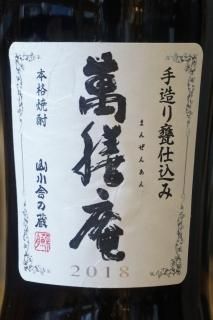 手造り甕仕込み
萬膳庵
まんぜんあん
本格焼酎
山小舎の蔵
2018